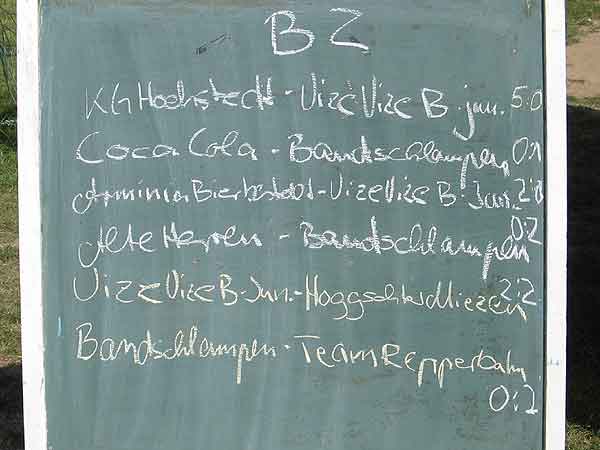 BZ
KG Hochstedt - Vize Vize B. jun. 5:0
Coca Cola - Bandschlampen 0:1
Arminia Bierbstadt - Vize Vize B. Jun. 2:0
Alte Herren - Bandschlampen 0:2
Vize Vize B. Jun. - Miezen 2:2
Bandschlampen - Team Repperbahn
0:2